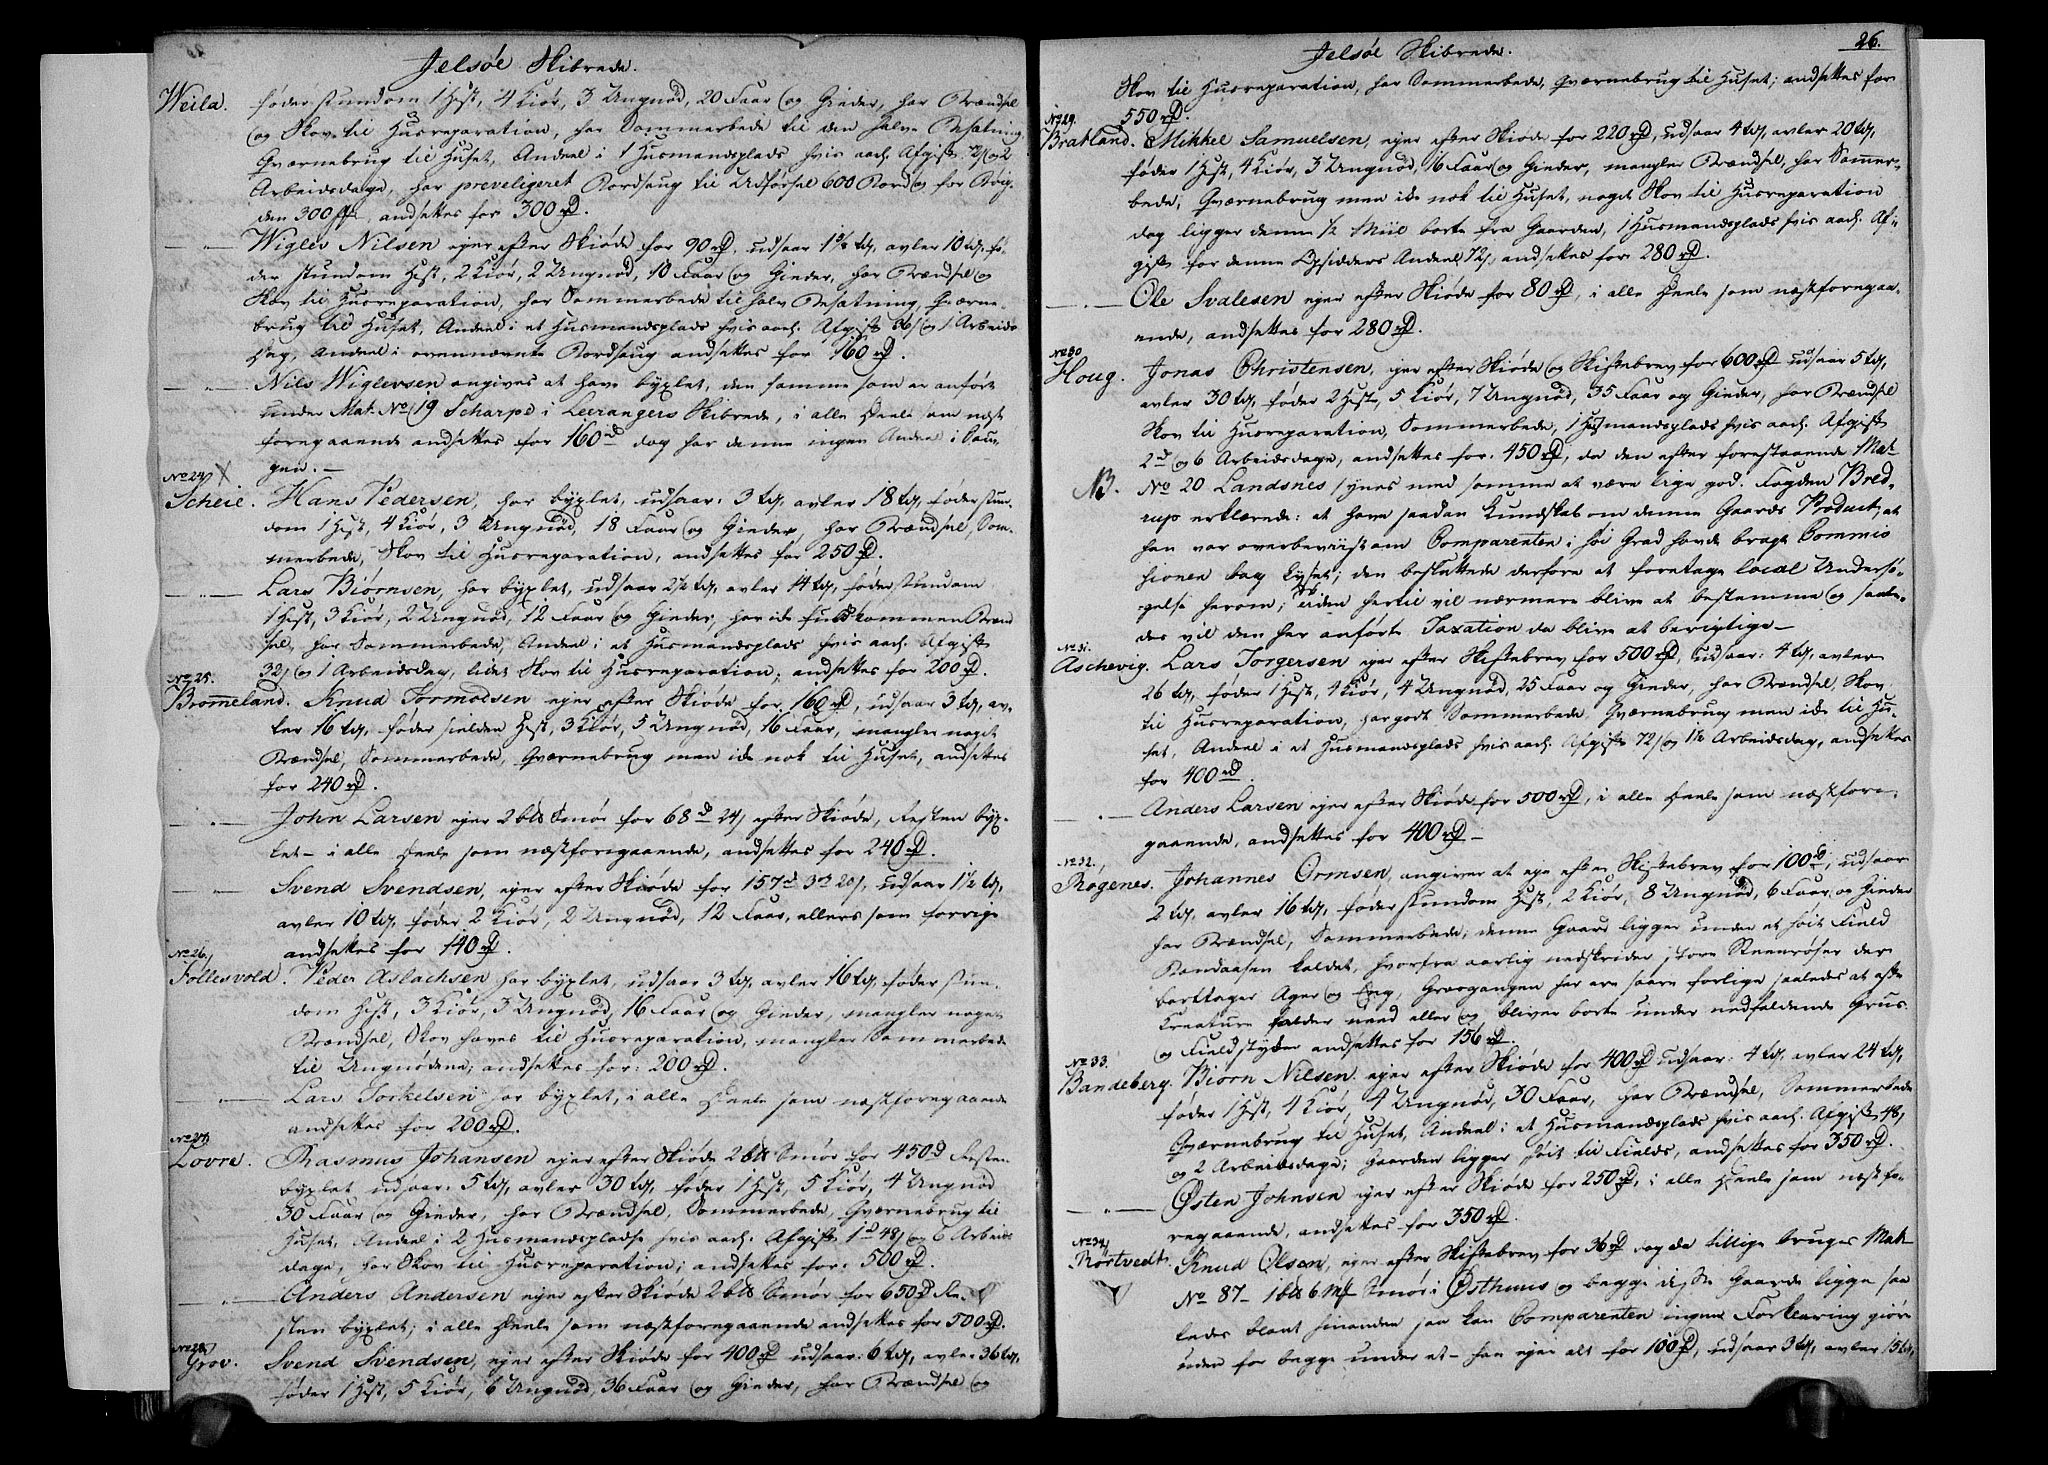 Jelsøe Skibrede.
Weila. føder stundom 1 Hest, 4 Kiør, 3 Ungnød, 20 Faar og Gieder, har Brændsel
og Skov til Husreparation, har Sommerbede til den halve Besætning,
Qværnebrug til Huset, Andeel i 1 Husmandsplads hvis aarl. Afgift 72 s og 2
Arbeidsdage, har preveligeret Bordsaug til Udførsel 600 Bord og for Bøig-
den 300, andsættes for 300 rD.
— " — Wigles Nilsen ejer efter Skiøde for 90 rD, udsaar 1 3/4 td, avler 10 td, fø-
der stundom Hest, 2 Kiør, 2 Ungnød, 10 Faar og Gieder, har Brændsel og
Skov til Husreparation, har Sommerbede til halv Besætning, Qværne-
brug til Huset, Andeel i et Husmandsplads hvis aarl. Afgift 36 s og 1 Arbeids-
dag, Andeel i ovennævnte Bordsaug andsættes for 160 rD.
— " — Nils Wiglevsen angives at have byxlet, den samme som er anført
under Mat. No 19 Scharpe i Leerangers Skibrede, i alle Deele som næst
foregaaende andsættes for 160 rD dog har denne ingen Andeel i Sau-
gen. —
No 24 X
Scheie. Hans Pedersen, har byxlet, udsaar: 3 td, avler 18 td, føder stun-
dom 1 Hest, 4 Kiør, 3 Ungnød, 18 Faar og Gieder, har Brændsel, Som-
merbede, Skov til Husreparation, andsættes for 250 rD.
— " — Lars Biørnsen, har byxlet, udsaar 2 1/2 td, avler 14 td, føder stundom
1 Hest, 3 Kiør, 2 Ungnød, 12 Faar og Gieder, har ide fuldkommen Brænd
sel, har Sommerbede, Andeel i et Husmandsplads hvis aarl. Afgift
32 s og 1 Arbeidsdag, lidet Skov til Husreparation; andsættes for 200 rD.
No 25.
Brommeland. Knud Tormodsen ejer efter Skiøde for 160 rD, udsaar 3 td, av-
ler 16 td, føder sielden Hest, 3 Kiør, 5 Ungnød, 16 Faar, mangler noget
Brændsel, Sommerbede, Qværnebrug men ide nok til Huset, andsættes
for 240 rD.
— " — John Larsen ejer 2 bls Smør for 68 d 24 s efter Skiøde, Resten byx-
let — i alle Deele som næstforegaaende, andsættes for 240 rD.
— " — Svend Svendsen, ejer efter Skiøde for 157 d 3 20 s, udsaar 1 1/2 td,
avler 10 td, føder 2 Kiør, 2 Ungnød, 12 Faar, ellers som forrige
andsættes for 140 rD.
No 26.
Follesvold. Peder Aslachsen har byxlet, udsaar 3 td, avler 16 td, føder stun-
dom Hest, 3 Kiør, 3 Ungnød, 16 Faar og Gieder, mangler noget
Brændsel, Skov haves til Husreparation, mangler Sommerbede
til Ungnødene, andsættes for: 200 rD.
— " — Lars Torkelsen har byxlet, i alle Deele som næstforegaaende
andsættes for 200 rD.
No 27.
Lovre. Rasmus Johansen ejer efter Skiøde 2 bls Smør for 450 D Resten
byxlet udsaar: 5 td, avler 30 td, føder 1 Hest, 5 Kiør, 4 Ungnød
30 Faar og Gieder, har Brændsel, Sommerbede, Qværnebrug til
Huset, Andeel i 2 Husmandspladse hvis aarl. Afgift 1 d 48 s og 6 Arbeids
dage, har Skov til Husreparation; andsættes for: 500 rD.
— " — Anders Andersen ejer efter Skiøde 2 bls Smør for 650 D Re-
sten byxlet; i alle Deele som næstforegaaende andsættes for 500 rD.
No 28.
Grov. Svend Svendsen, ejer efter Skiøde for 400 rD udsaar: 6 td, avler 36 td,
føder 1 Hest, 5 Kiør, 6 Ungnød, 36 Faar og Gieder, har Brændsel og
Jelsøe Skibrede.
26.
Skov til Husreparation, har Sommerbede, Qværnebrug til Huset; andsættes for
550 rD.
No 29.
Bratland. Mikkel Samuelsen, ejer efter Skiøde for 220 rD, udsaar 4 td, avler 20 td,
føder 1 Hest, 4 Kiør, 3 Ungnød, 16 Faar og Gieder, mangler Brændsel, har Sommer-
bede, Qværnebrug men ide nok til Huset, noget Skov til Husreparation
dog ligger denne 1/2 Miil borte fra Gaarden, 1 Husmandsplads hvis aarl. Af-
gift for denne Opsidders Andeel 72 s, andsættes for 280 rD.
— " — Ole Svalesen ejer efter Skiøde for 80 rD, i alle Deele som næstforegaa-
ende, andsættes for 280 rD.
No 30
Houg. Jonas Christensen, ejer efter Skiøde og Skiftebrev for 600 rD udsaar 5 td,
avler 30 td, føder 2 Hest, 5 Kiør, 7 Ungnød, 35 Faar og Gieder, har Brændsel
Skov til Husreparation, Sommerbede, 1 Husmandsplads hvis aarl. Afgift
2 d og 6 Arbeidsdage, andsættes for: 450 rD, da den efter forestaaende Mat
NB. No 20 Landsnes synes med somme at være lige god. Fogden Bred-
rup erklærede: at have saadan Kundskab om denne Gaards Product, at
han var overbeviist om Comparenten i høi Grad havde bragt Commis
sionen bag Lyset; den besluttede derfore at foretage local Undersø-
gelse herom; Tiden hertil vil nærmere blive at bestemme og saale-
des vil den her anførte Taxation da blive at berigtige —
No 31.
Aschevig. Lars Torgersen ejer efter Skiftebrev for 500 rD, udsaar: 4 td, avler
26 td, føder 1 Hest, 4 Kiør, 4 Ungnød, 25 Faar og Gieder, har Brændsel, Skov
til Husreparation, har godt Sommerbede, Qværnebrug men ide til Hu-
set, Andeel i et Husmandsplads hvis aarl. Afgift 72 s og 1 1/2 Arbeidsdag, andsættes
for 400 rD.
— " — Anders Larsen ejer efter Skiøde for 500 rD, i alle Deele som næstfore-
gaaende, andsættes for 400 rD —
No 32.
Røgenes. Johannes Ormsen, angiver at eje efter Skiftebrev for 100 rD, udsaar
2 td, avler 16 td, føder stundom Hest, 2 Kiør, 8 Ungnød, 6 Faar og Gieder
har Brændsel, Sommerbede; denne Gaard ligger under et høit Field
Bandaasen kaldet, hvorfra aarlig nedskrider store Steenrøser der
borttager Ager og Eng, Græsgangen her ere saare farlige saaledes at ofte
Kreature falder need eller og bliver borte under nedfaldende Grus
og Fieldstyker andsættes for 156 rD.
No 33.
Bandeberg. Biørn Nilsen ejer efter Skiøde for 400 rD udsaar: 4 td, avler 24 td,
føder 1 Hest, 4 Kiør, 4 Ungnød, 30 Faar, har Brændsel, Sommerbede
Qværnebrug til Huset, Andeel i et Husmandsplads hvis aarl. Afgift 48 s
og 2 Arbeidsdage; Gaarden ligger høit til Fields, andsættes for 350 rD.
— " — Østen Johnsen ejer efter Skiøde for 250 rD, i alle Deele som næstfo-
regaaende, andsættes for 350 rD.
No 34
Rørtvedt. Knud Olsen, ejer efter Skiftebrev for 36 rD dog da tillige bruges Mat
No 87 — 1 bls 6 Mk Smør i Østhuus og begge disse Gaarde ligge saa
ledes blant hinanden saa kan Comparenten ingen Forklaring giøre
uden for begge under et — han ejer alt for 100 rD, udsaar 3 td, avler 15 td,